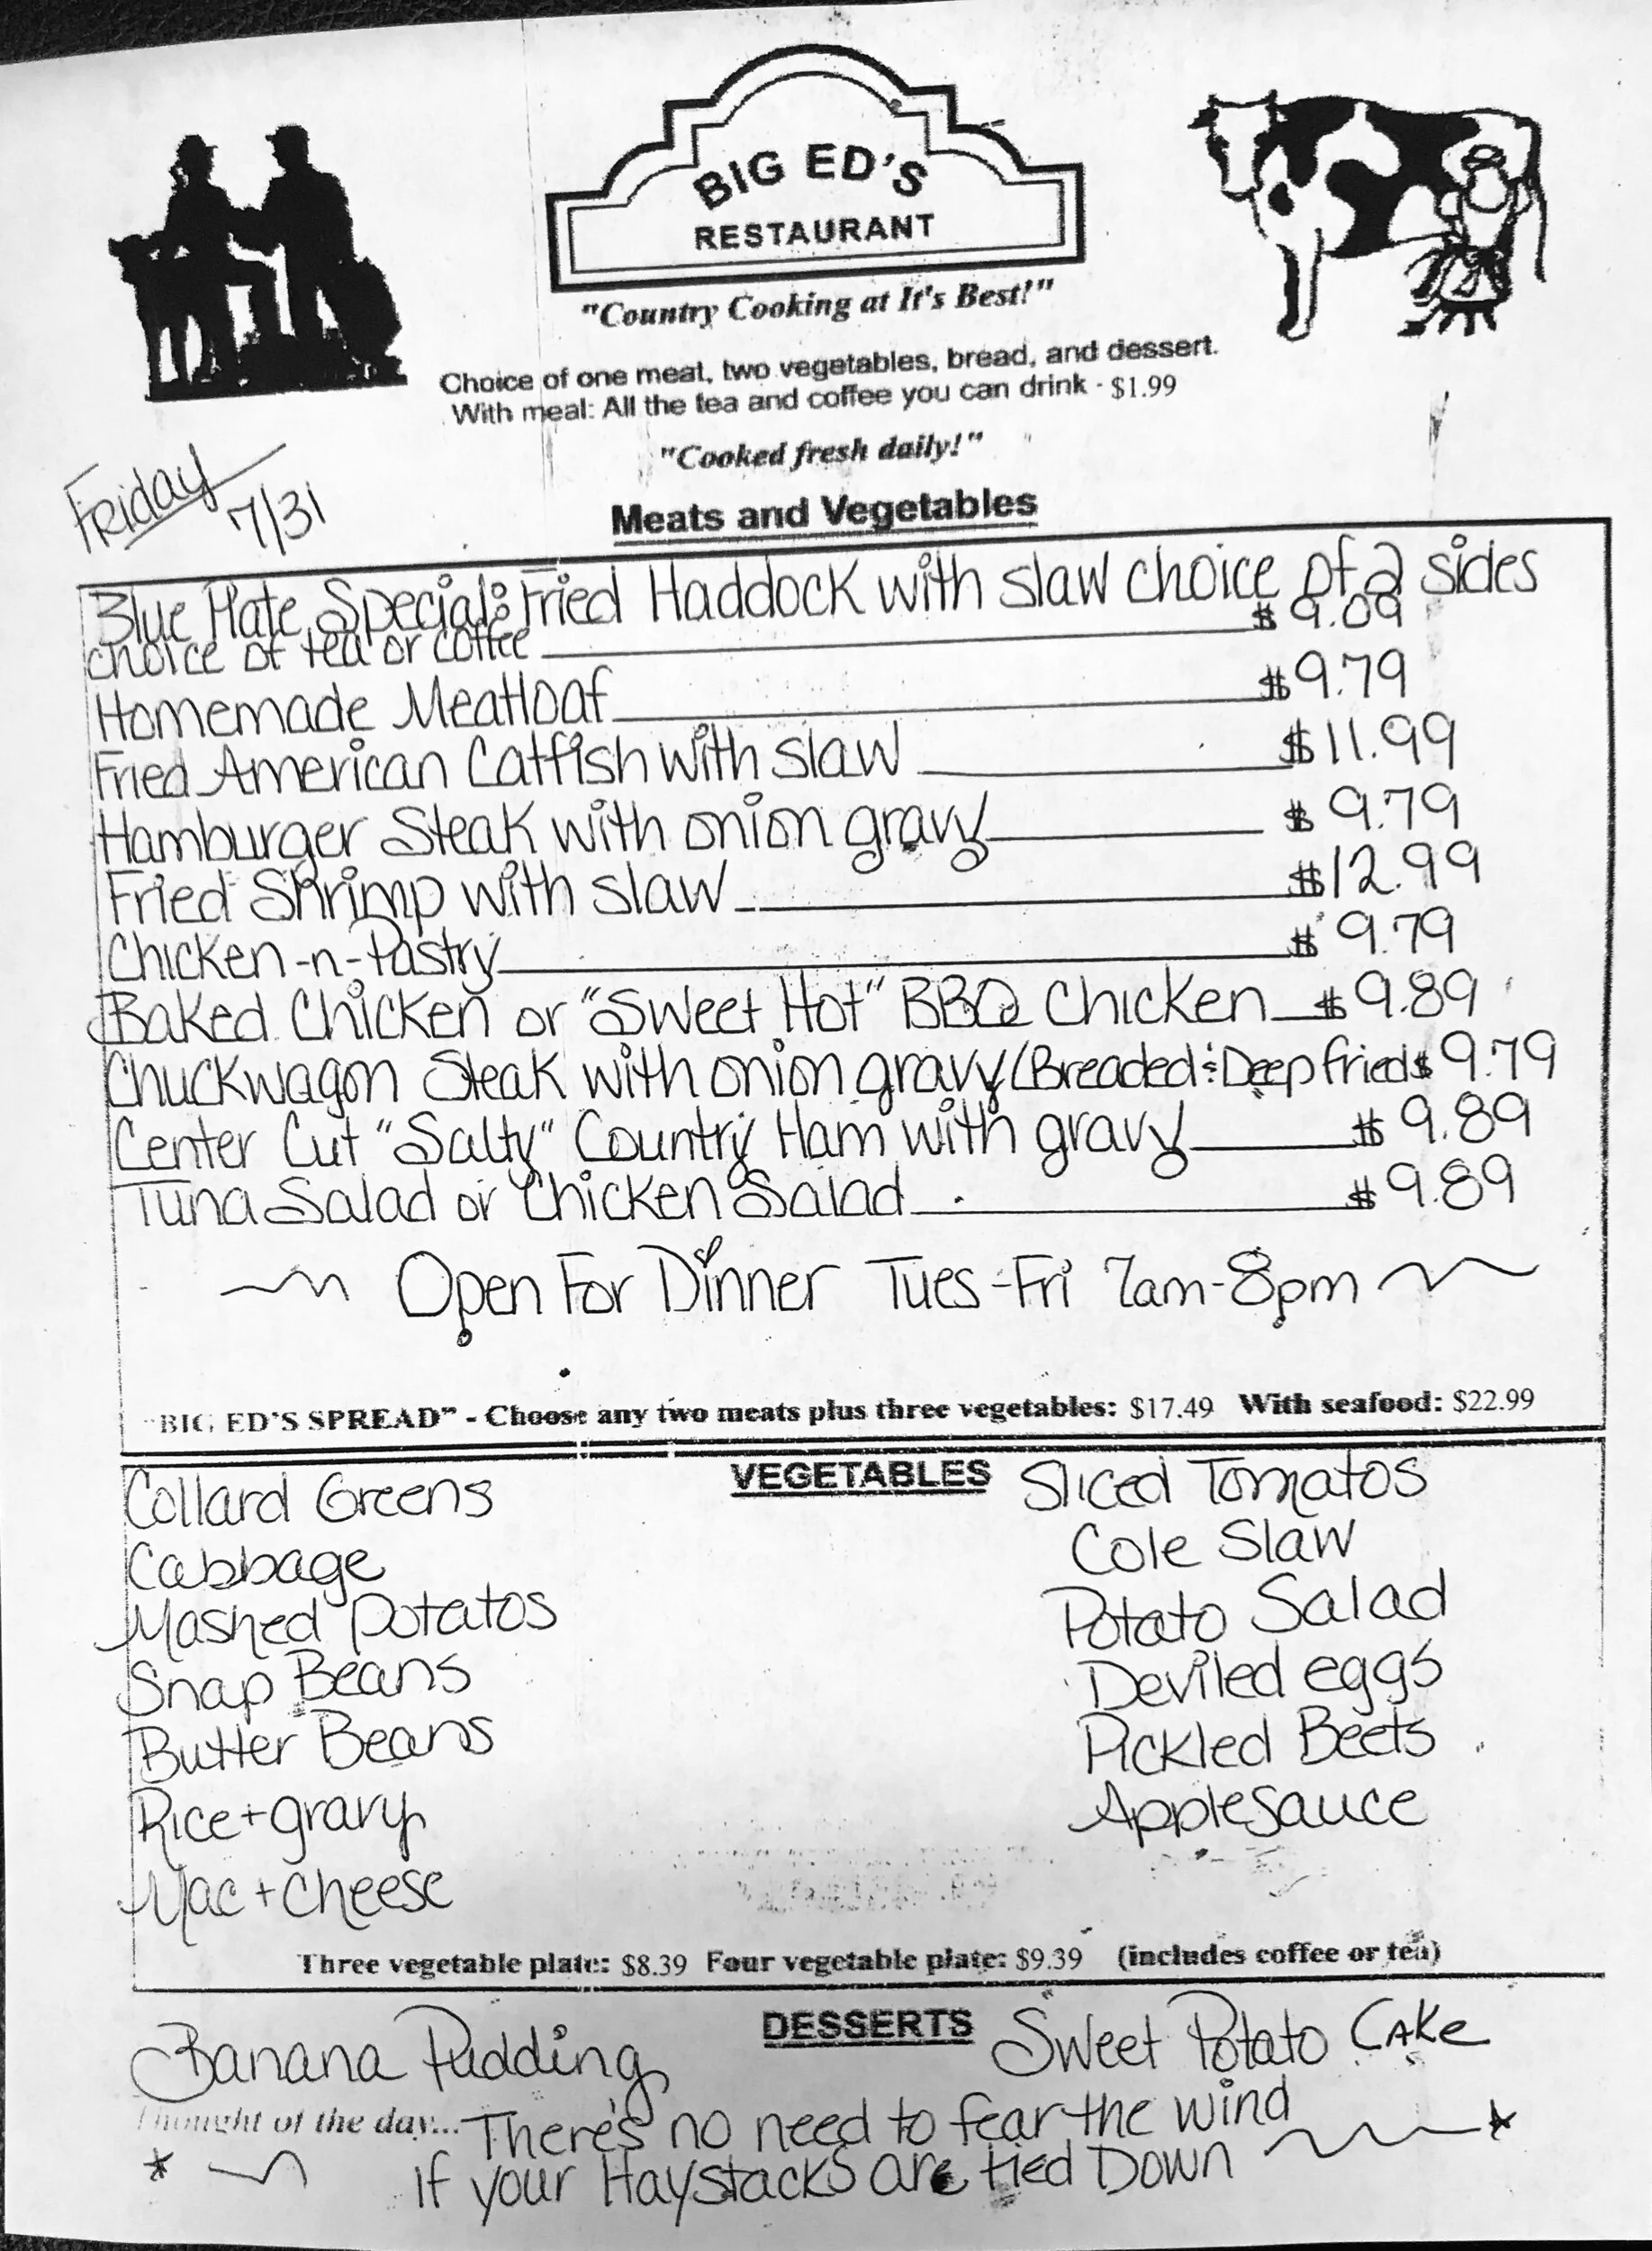 BIG ED'S
RESTAURANT
"Country Cooking at It's Best!"
Choice of one meat, two vegetables, bread, and dessert.
With meal: All the tea and coffee you can drink - $1.99
"Cooked fresh daily!"
Friday
7/31
Meats and Vegetables
Blue Plate Special: Fried Haddock with slaw choice of 2 sides
choice of tea or coffee $9.09
Homemade Meatloaf $9.79
Fried American Catfish with slaw $11.99
Hamburger Steak with onion gravy $9.79
Fried Shrimp with slaw $12.99
Chicken-n-Pastry $9.79
Baked Chicken or "Sweet Hot" BBQ Chicken $9.89
Chuckwagon Steak with onion gravy (Breaded & Deep fried $9.79
Center Cut "Salty" Country Ham with gravy $9.89
Tuna Salad or Chicken Salad $9.89
Open For Dinner Tues-Fri 7am-8pm
"BIG ED'S SPREAD" - Choose any two meats plus three vegetables: $17.49 With seafood: $22.99
VEGETABLES
Collard Greens
Cabbage
Mashed Potatos
Snap Beans
Butter Beans
Rice + gravy
Mac + cheese
Sliced Tomatos
Cole Slaw
Potato Salad
Deviled eggs
Pickled Beets
Applesauce
Three vegetable plate: $8.39 Four vegetable plate: $9.39 (includes coffee or tea)
DESSERTS
Banana Pudding
Sweet Potato Cake
Thought of the day... There's no need to fear the wind
if your Haystacks are tied Down